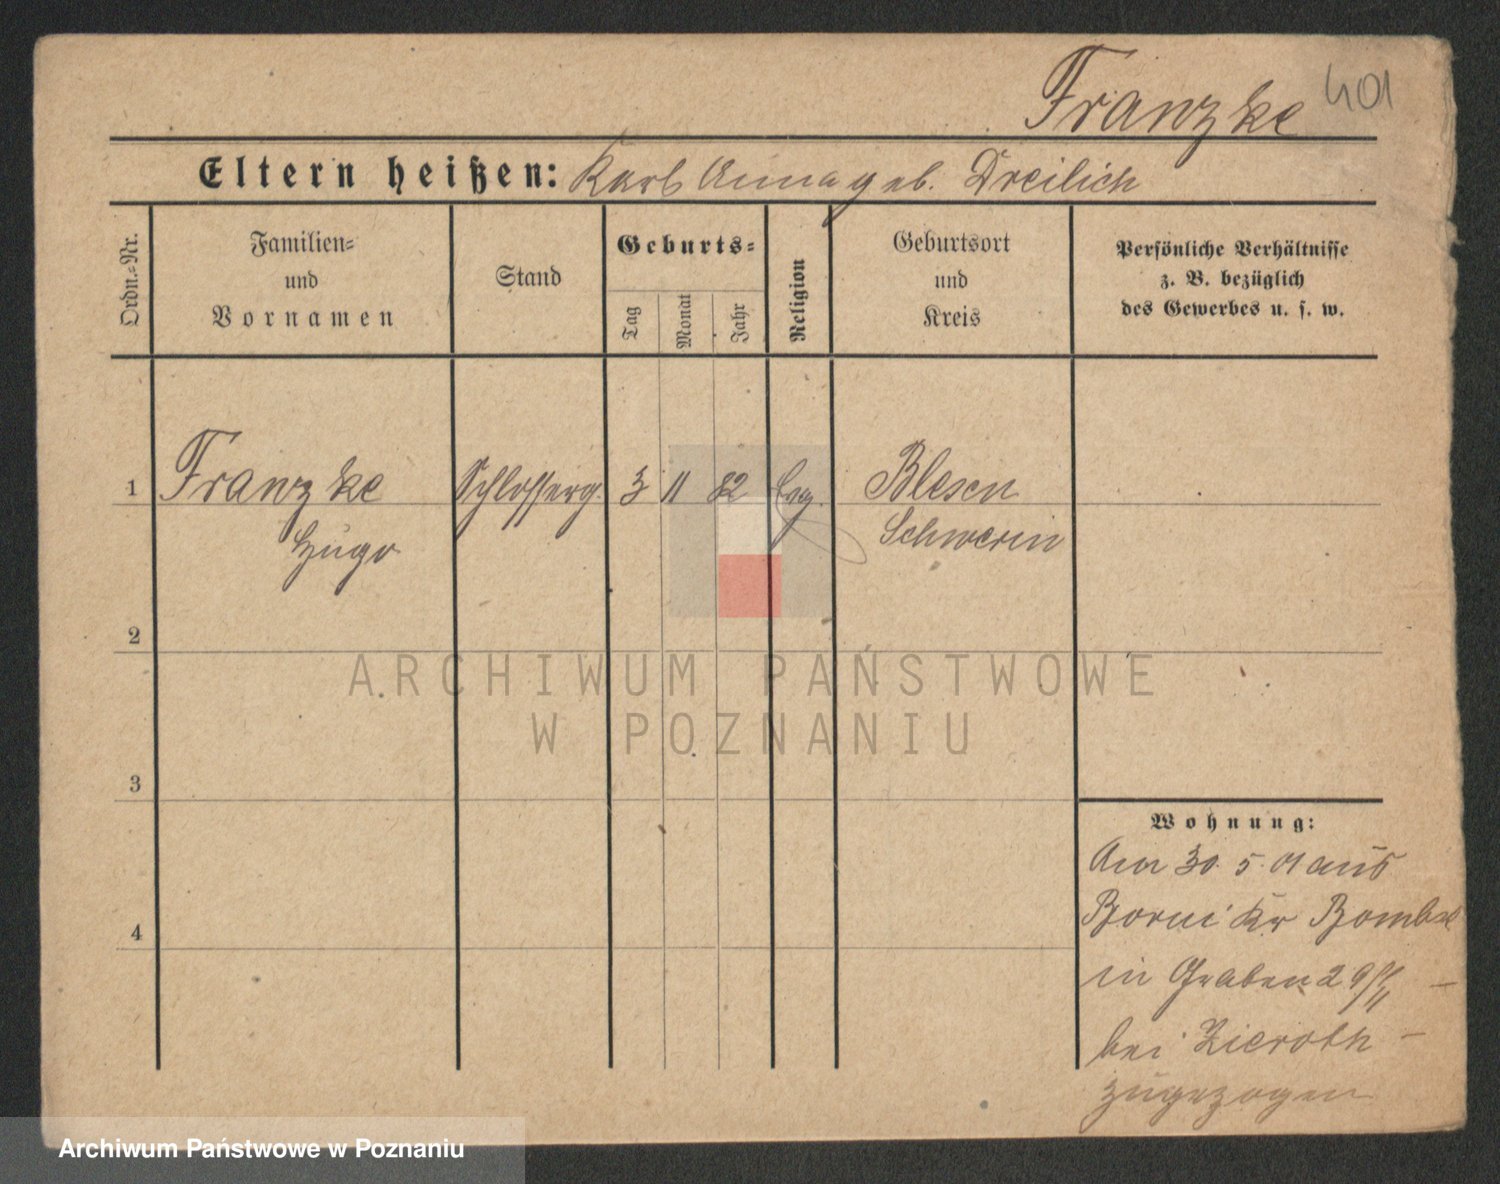 Franzke 401
Eltern heißen: Karl Anna geb. Dreilich
Ordn.=Nr.
Familien=
und
Vornamen
Stand
Geburts=
Tag
Monat
Jahr
Religion
Geburtsort
und
Kreis
Persönliche Verhältnisse
z. B. bezüglich
des Gewerbes u. s. w.
1 Franzke Schlosserg. 3 11 82 Evg. Blesen
Hugo Schwerin
2
ARCHIWUM PAŃSTWOWE
W POZNANIU
3
Wohnung:
Am 30. 5. 01 aus
Borui Kr Bomst
4
in Graben 29
bei Zieroth
zugezogen
Archiwum Państwowe w Poznaniu